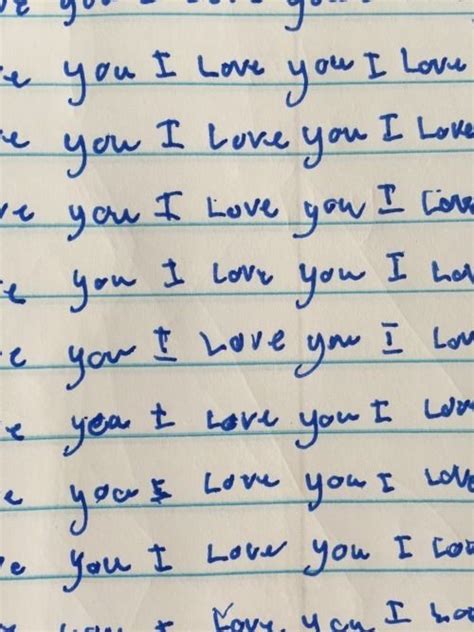 you I Love you
you I Love you I Love
you I Love you I Love
you I Love you I Love
you I Love you I
you I Love you I
you I Love you I
you I Love you I Love
you I Love you I
you I Love you I